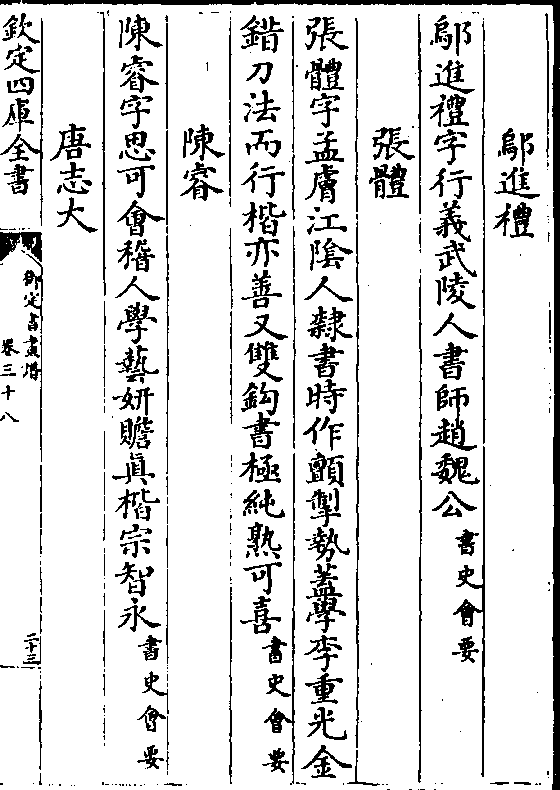 鄔進禮
鄔進禮字行義武陵人書師趙魏公書史會要
張體
張體字孟膚江陰人隸書時作顫掣勢蓋學李重光金
錯刀法而行楷亦善又雙鈎書極純熟可喜書史會要
陳睿
陳睿字思可會稽人學藝妍贍真楷宗智永書史會要
唐志大
欽定四庫全書
御定書畫譜
卷三十八
二十三